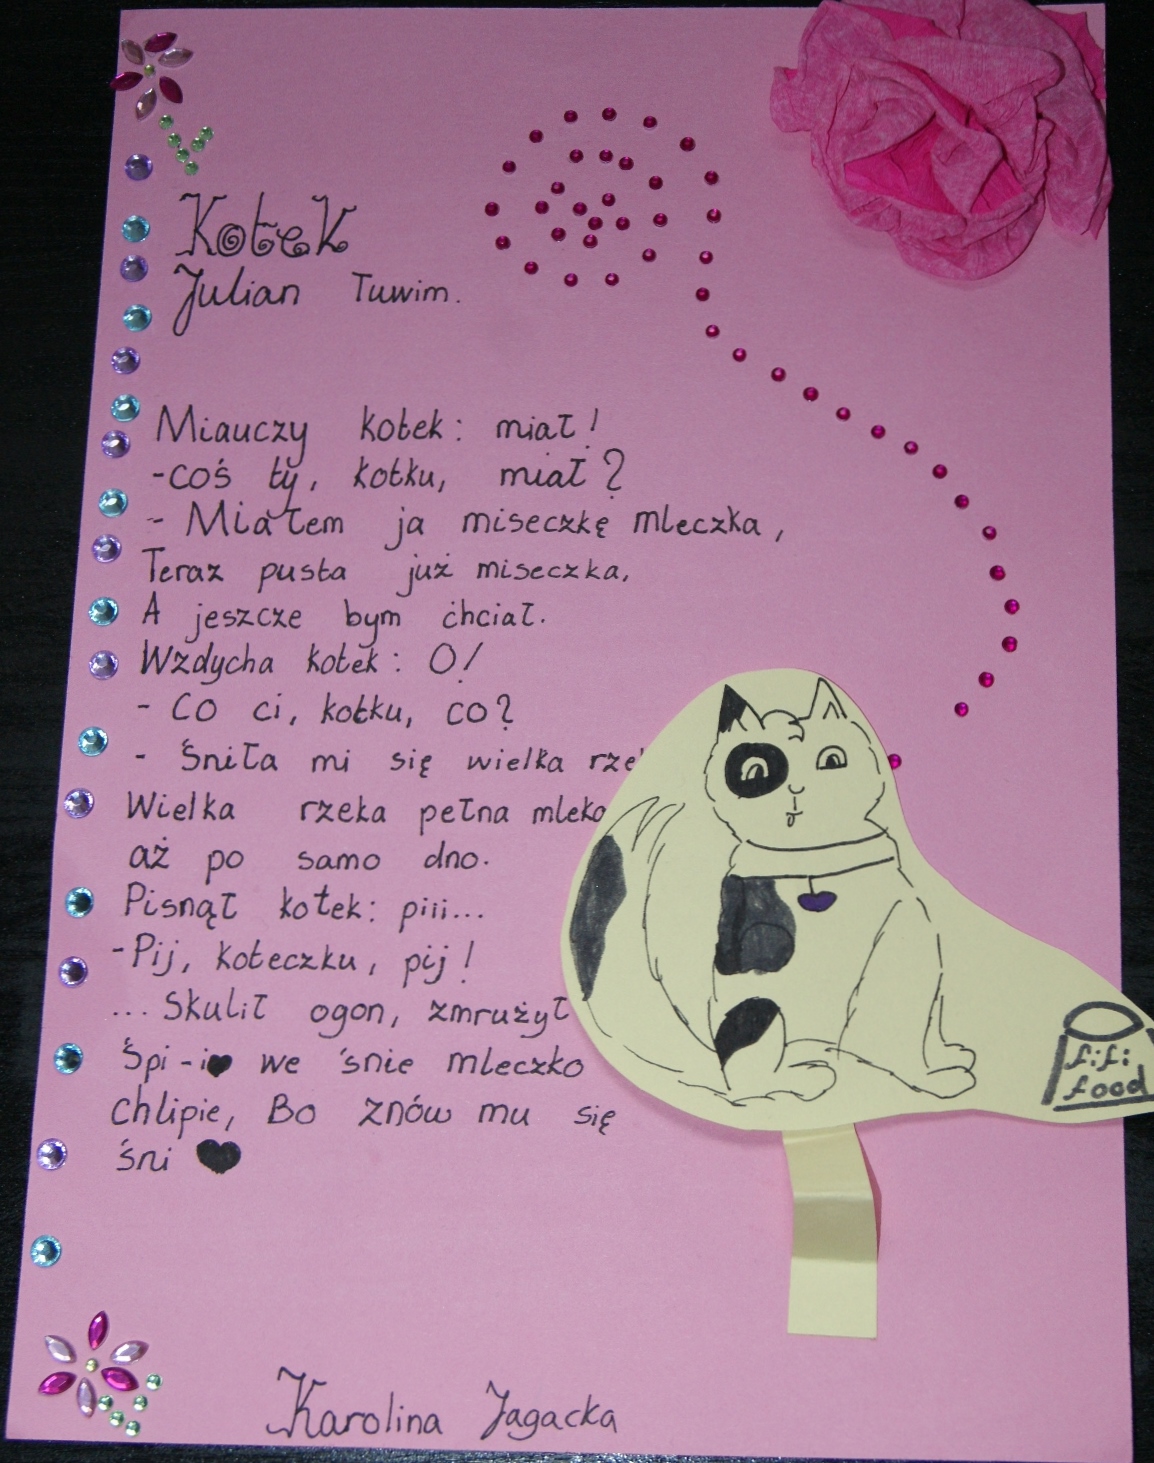 Kotek
Julian Tuwim.
Miauczy kotek: miał!
-coś ty, kotku, miał?
- Miałem ja miseczkę mleczka,
Teraz pusta już miseczka,
A jeszcze bym chciał.
Wzdycha kotek: O!
- Co ci, kotku, co?
- Śniła mi się wielka
Wielka rzeka pełna mleka
aż po samo dno.
Pisnął kotek: piii...
-Pij, koteczku, pij!
...Skulił ogon, zmrużył
Śpi-i we śnie mleczko
chlipie, Bo znów mu się
śni
fifi
food
Karolina Jagacka